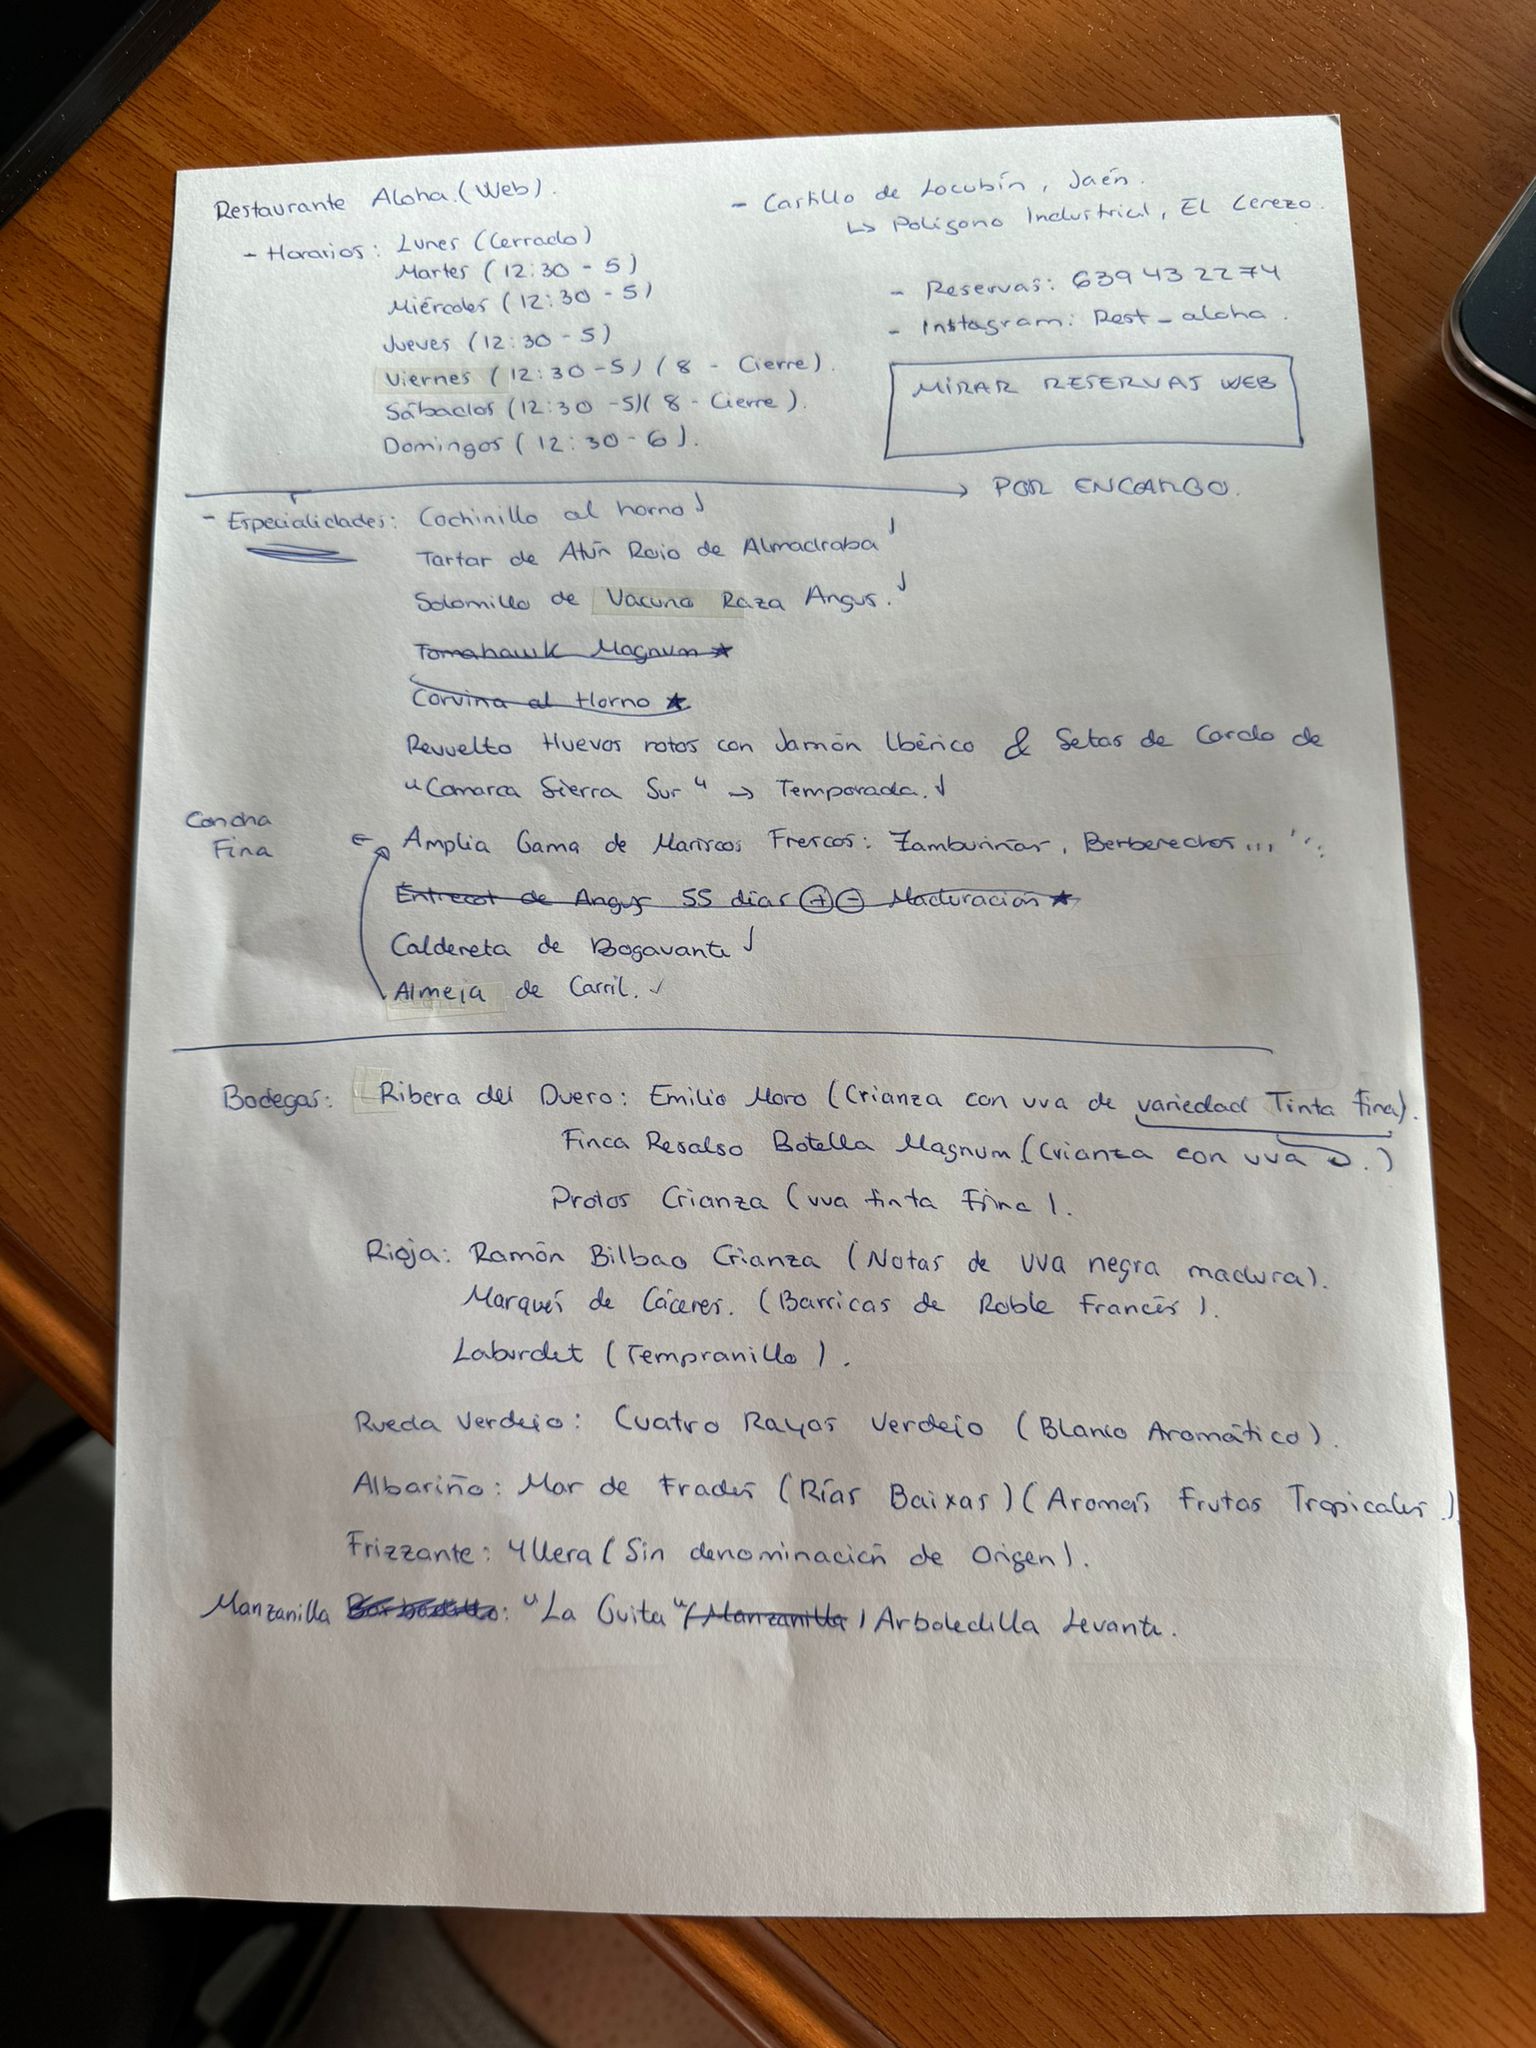 Restaurante Aloha (Web).
- Horarios: Lunes (Cerrado)
Martes (12:30 - 5)
Miércoles (12:30 - 5)
Jueves (12:30 - 5)
Viernes (12:30 - 5) (8 - Cierre).
Sábados (12:30 - 5) (8 - Cierre).
Domingos (12:30 - 6).
- Castillo de Locubín, Jaén.
↳ Polígono Industrial, El Cerezo.
- Reservas: 639 43 22 74
- Instagram: Rest_aloha.
MIRAR RESERVAS WEB
→ POR ENCARGO.
- Especialidades: Cochinillo al horno ✓
Tartar de Atún Rojo de Almadraba ✓
Solomillo de Vacuno Raza Angus. ✓
Tomahawk Magnum ★
Corvina al Horno ★
Revuelto Huevos rotos con Jamón Ibérico & Setas de Cardo de
"Comarca Sierra Sur" → Temporada. ✓
Concha
Fina
← Amplia Gama de Mariscos Frescos: Zamburiñas, Berberechos...
Entrecot de Angus 55 días ⊕⊖ Maduración ★
Caldereta de Bogavante ✓
Almeja de Carril. ✓
Bodegas: Ribera del Duero: Emilio Moro (Crianza con uva de variedad Tinta Fina).
Finca Resalso Botella Magnum (Crianza con uva .)
Protos Crianza (uva tinta Fina).
Rioja: Ramón Bilbao Crianza (Notas de uva negra madura).
Marqués de Cáceres. (Barricas de Roble Francés).
Laburdet (Tempranillo).
Rueda Verdejo: Cuatro Rayas Verdejo (Blanco Aromático).
Albariño: Mar de Frades (Rías Baixas) (Aromas Frutas Tropicales).
Frizzante: Yllera (Sin denominación de Origen).
Manzanilla Barbadillo: "La Guita" (Manzanilla) Arboledilla Levante.